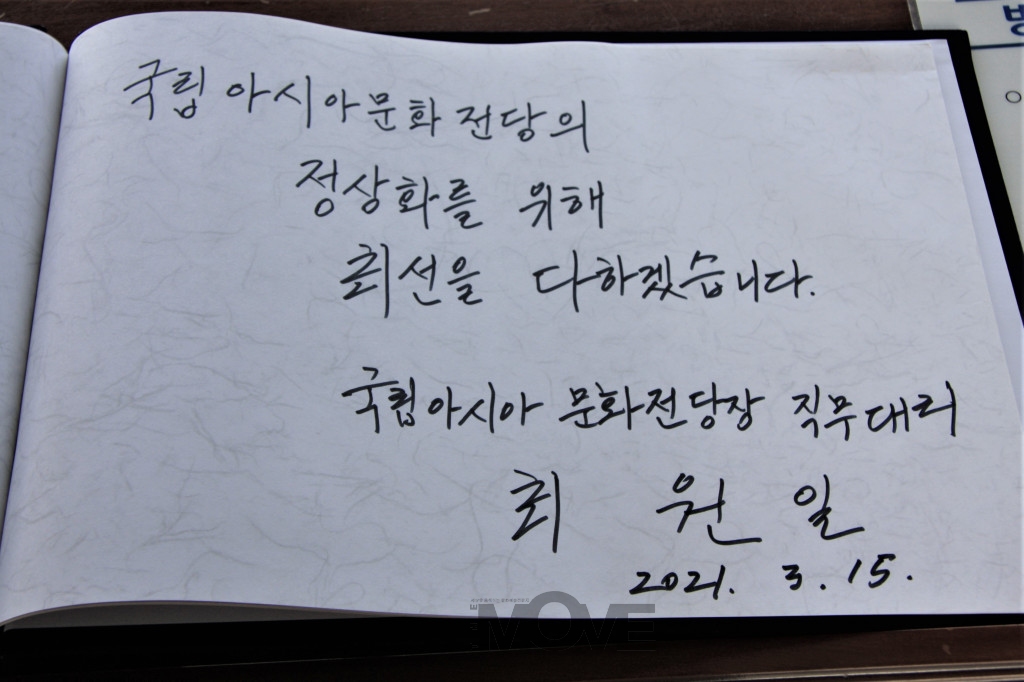 국립 아시아문화 전당의
정상화를 위해
최선을 다하겠습니다.
국립아시아 문화전당장 직무대리
최 원 일
2021. 3. 15.
MOVE